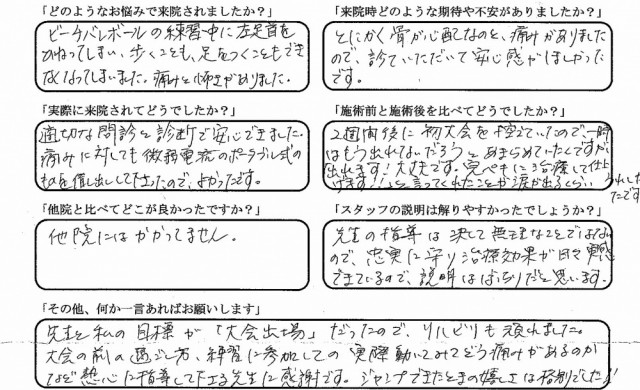 「どのようなお悩みで来院されましたか？」
ビーチバレボールの練習中に左足首を
ひねってしまい、歩くことも、足をつくこともでき
なくなってしまいました。痛みと怖さがありました。
「来院時どのような期待や不安がありましたか？」
とにかく骨が心配なのと、痛みがありました
ので、診ていただいて安心感がほしかった
です。
「実際に来院されてどうでしたか？」
適切な問診と診断で安心できました。
痛みに対しても微弱電流のポータブル式の
ものを貸し出しして下さったので、よかったです。
「施術前と施術後を比べてどうでしたか？」
2週間後に初大会を控えていたので、一時
はもう出れないだろうとあきらめていたのですが、
出れます！大丈夫です。完ぺきに治療して仕上
げます！！と言ってくれたことが涙が出るくらい
うれしかっ
たです
「他院と比べてどこが良かったですか？」
他院にはかかってません。
「スタッフの説明は解りやすかったでしょうか？」
先生の指導は決して無理なことではない
ので、忠実に守り治療効果が日々実感
できているので、説明はばっちりだと思います。
「その他、何か一言あればお願いします」
先生と私の目標が「大会出場」だったので、リハビリも頑れました。
大会の前の過ごし方、練習に参加しての実際動いてみてどう痛みがあるのか
など熱心に指導して下さる先生に感謝です。ジャンプできたときの嬉しさは格別でした！！